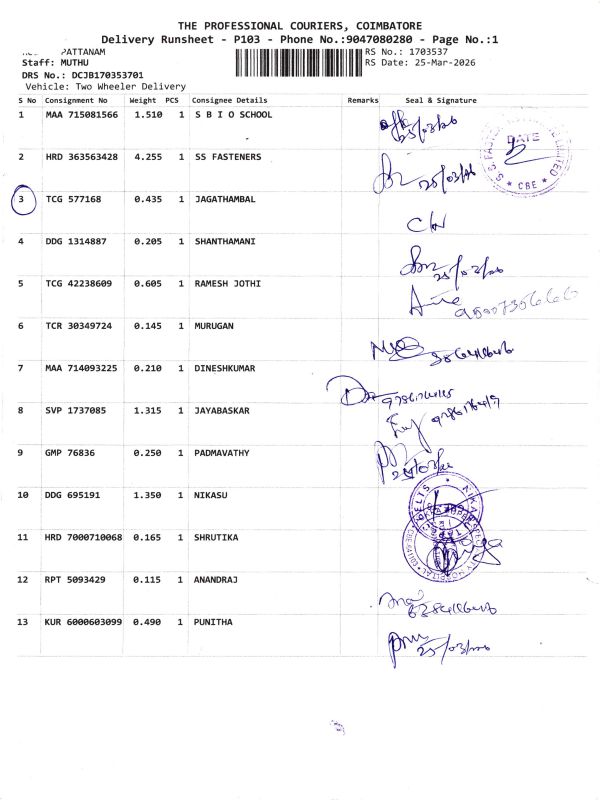 THE PROFESSIONAL COURIERS, COIMBATORE
Delivery Runsheet - P103 - Phone No.:9047080280 - Page No.:1
PATTANAM RS No.: 1703537
Staff: MUTHU RS Date: 25-Mar-2026
DRS No.: DCJB170353701
Vehicle: Two Wheeler Delivery
S No Consignment No Weight PCS Consignee Details Remarks Seal & Signature
1 MAA 715081566 1.510 1 S B I O SCHOOL
25/03/26
DATE
CBE
2 HRD 363563428 4.255 1 SS FASTENERS
25/03/26
3 TCG 577168 0.435 1 JAGATHAMBAL
4 DDG 1314887 0.205 1 SHANTHAMANI
25/03/26
5 TCG 42238609 0.605 1 RAMESH JOTHI
6 TCR 30349724 0.145 1 MURUGAN
7 MAA 714093225 0.210 1 DINESHKUMAR
8 SVP 1737085 1.315 1 JAYABASKAR
9 GMP 76836 0.250 1 PADMAVATHY
10 DDG 695191 1.350 1 NIKASU
11 HRD 7000710068 0.165 1 SHRUTIKA
12 RPT 5093429 0.115 1 ANANDRAJ
13 KUR 6000603099 0.490 1 PUNITHA
25/03/26